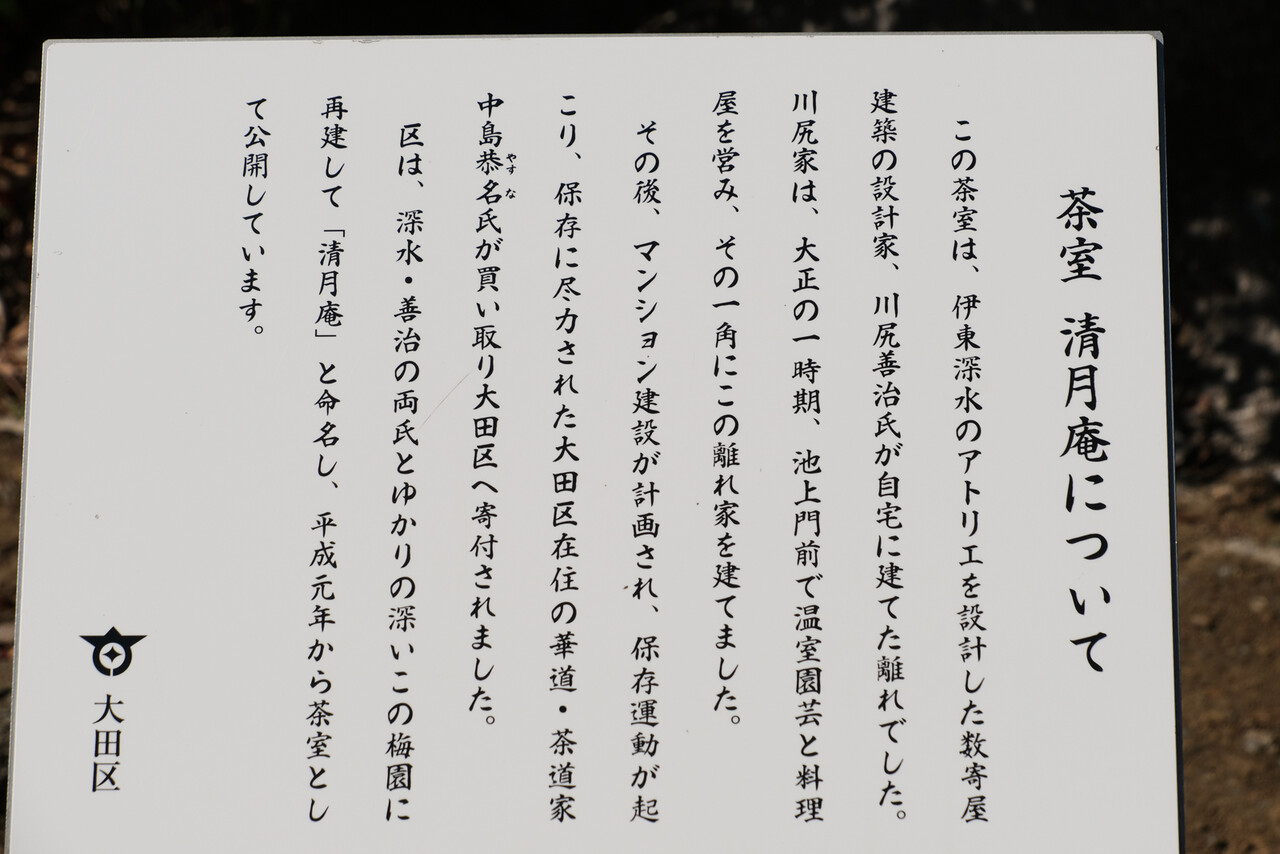 茶室 清月庵について
この茶室は、伊東深水のアトリエを設計した数寄屋
建築の設計家、川尻善治氏が自宅に建てた離れでした。
川尻家は、大正の一時期、池上門前で温室園芸と料理
屋を営み、その一角にこの離れ家を建てました。
その後、マンション建設が計画され、保存運動が起
こり、保存に尽力された大田区在住の華道・茶道家
中島恭名氏が買い取り大田区へ寄付されました。
やすな
区は、深水・善治の両氏とゆかりの深いこの梅園に
再建して「清月庵」と命名し、平成元年から茶室とし
て公開しています。
大田区